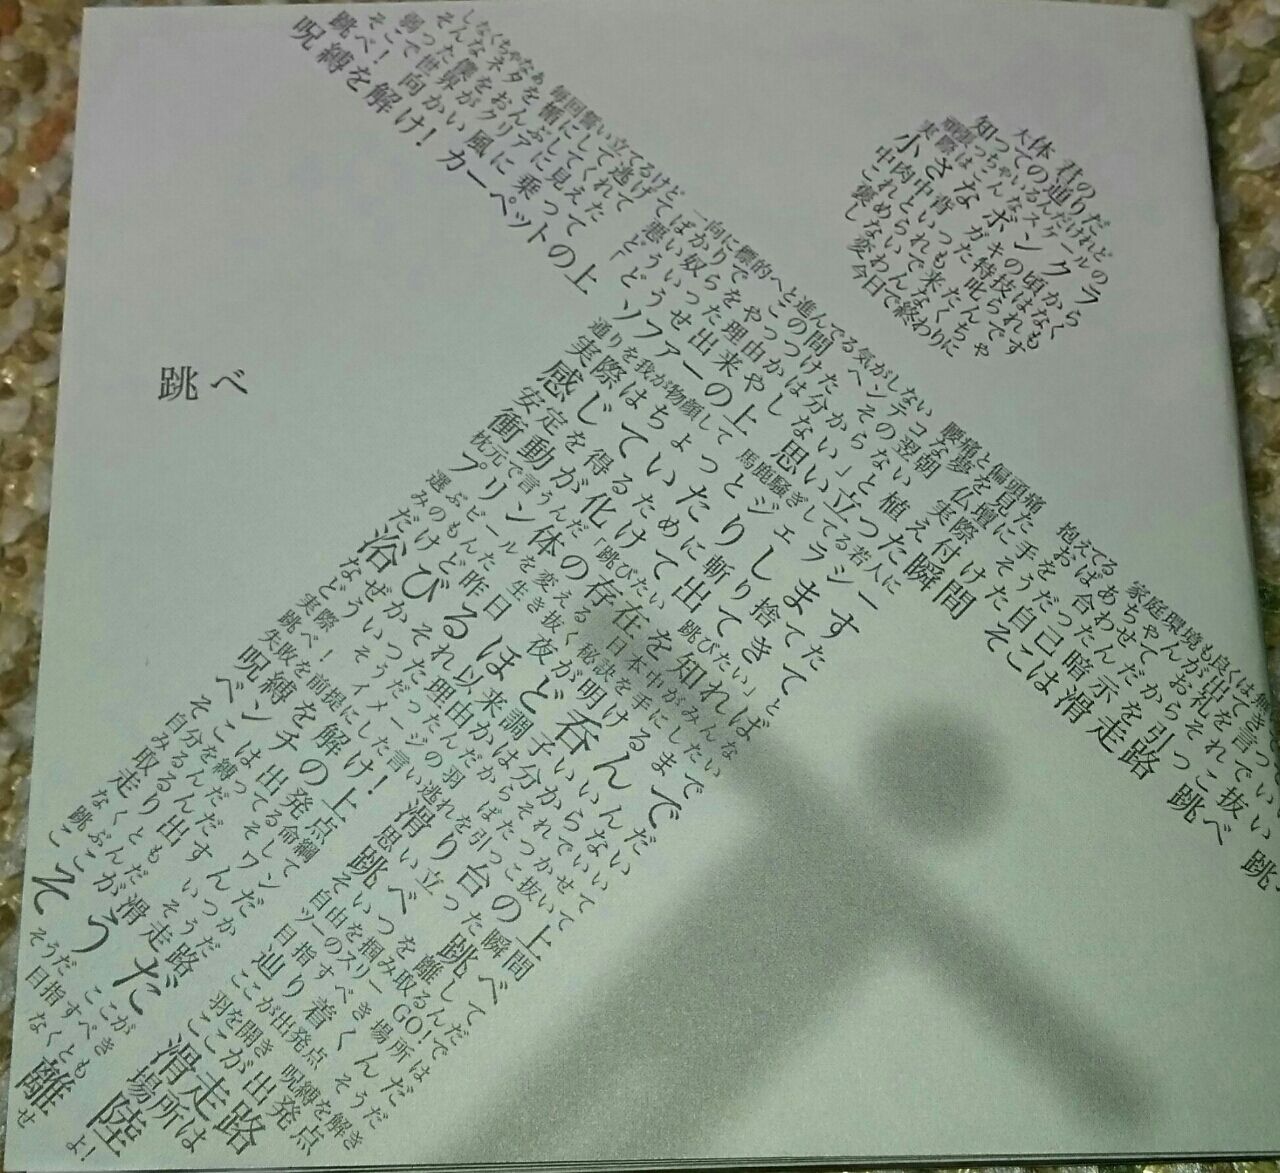 大体 君の
知っての通りだ
頑張っちゃいるんだけれど
実際はこんなスケールの
小さなボンクラ
中肉中背 ガキの頃から
これといった特技はなく
褒められも叱られも
しないで来たんです
変わんなくちゃ
今日で終わりに
しなくちゃなぁ 毎回奮い立てるけど 一向に標的へと進んでる気がしない 腰痛と偏頭痛 抱えてる 家庭環境も良くは無
そんなネタを楯にして逃げてばかりで この間 ヘンテコな夢を見た おばあちゃんが出てき
弱った僕をおんぶしてくれて 悪い奴らをやっつけた その翌朝 仏壇に手を合わせて お礼を言っ
そこで世界がクリアに見えた どういった理由かは分からない 実際 そうだったんだから それでい
跳べ! 向かい風に乗って 「どうせ出来やしない」と植え付けた自己暗示を引っこ抜い
呪縛を解け! カーペットの上 ソファーの上 思い立った瞬間 そこは滑走路 跳べ 跳
跳べ
通りを我が物顔して 馬鹿騒ぎしてる若人に
実際はちょっとジェラシー
感じていたりします
安定を得るために斬り捨てた
衝動が化けて出てきて
枕元で言うんだ「跳びたい 跳びたい」と
プリン体の存在を知れば
選ぶビールを変える 日本中がみんな
みのもんた 生き抜く秘訣を手にしたい
だけど昨日 夜が明けるまで
浴びるほど呑んで
なぜかそれ以来調子いいんだ
どういった理由かは分からない
実際 そうだったんだから それでいい
跳べ! イメージの羽 ばたつかせて
失敗を前提にした言い逃れを引っこ抜いて
呪縛を解け! 滑り台の上
ベンチの上 思い立った瞬間
そこは出発点 跳べ 跳べ
自分を縛ってる命綱 そいつを離して
み取るんだ そして 自由を掴み取るんだ
ワンツーのスリーGO!で
走り出すんだ 目指すべき場所は
なくとも いつか辿り着くんだ
跳ぶんだ そうだ ここが出発点 そうだ
ここが滑走路 羽を開き 呪縛を解き
そうだ ここが出発点
そうだ ここが滑走路
目指すべき場所は
なくとも 離陸せよ!